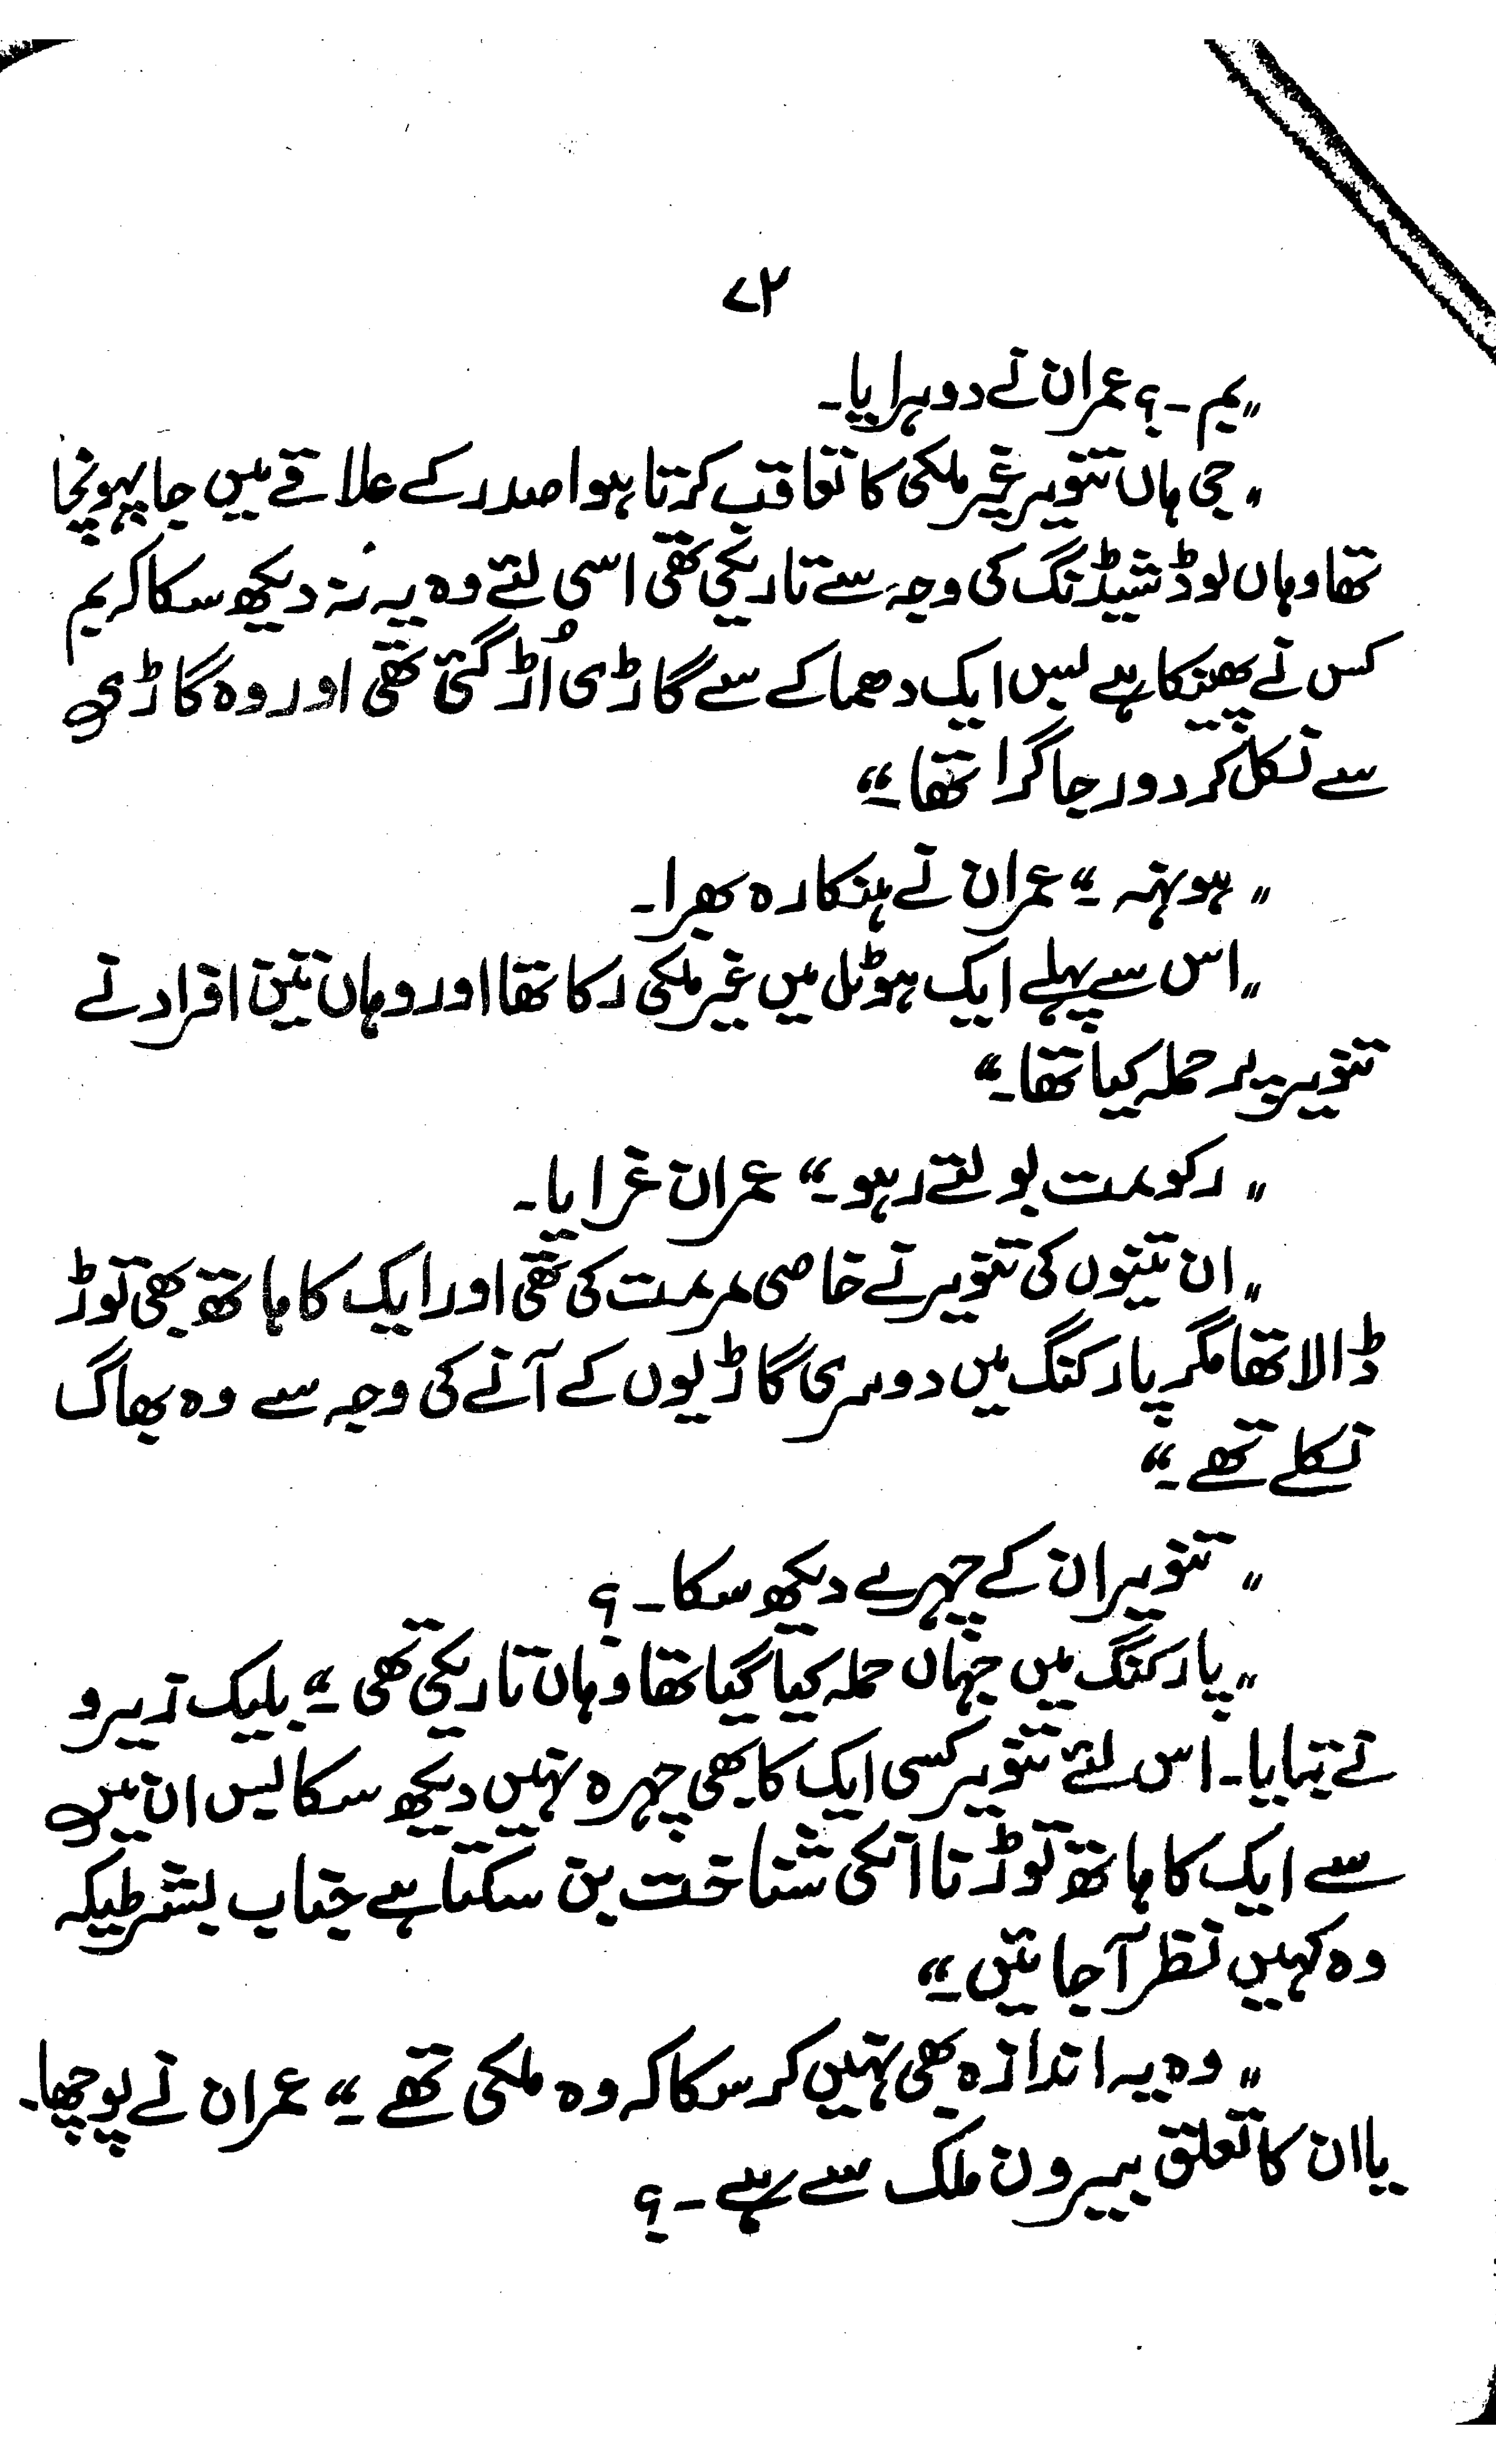 ۷۲
"بم۔؟ عمران نے دوہرایا۔
"جی ہاں تنویر غیر ملکی کا تعاقب کرتا ہوا صدر کے علاقے میں جا پہونچا
تھا وہاں لوڈ شیڈنگ کی وجہ سے تاریکی تھی اسی لئے وہ یہ نہ دیکھ سکا کہ بم
کس نے پھینکا ہے بس ایک دھماکے سے گاڑی اُڑ گئی تھی اور وہ گاڑی
سے نکل کر دور جا گرا تھا۔"
"ہونہہ۔" عمران نے ہنکارہ بھرا۔
"اس سے پہلے ایک ہوٹل میں غیر ملکی رکا تھا اور وہاں تین افراد نے
تنویر پر حملہ کیا تھا۔"
"رکو مت بولتے رہو۔" عمران غرایا۔
"ان تینوں کی تنویر نے خاصی مرمت کی تھی اور ایک کا ہاتھ بھی توڑ
ڈالا تھا مگر پارکنگ میں دوسری گاڑیوں کے آنے کی وجہ سے وہ بھاگ
نکلے تھے۔"
"تنویر ان کے چہرے دیکھ سکا۔؟
"پارکنگ میں جہاں حملہ کیا گیا تھا وہاں تاریکی تھی۔" بلیک زیرو
نے بتایا۔ اس لئے تنویر کسی ایک کا بھی چہرہ نہیں دیکھ سکا بس ان میں
سے ایک کا ہاتھ توڑنا انکی شناخت بن سکتا ہے جناب بشرطیکہ
وہ کہیں نظر آ جائیں۔"
"وہ یہ اندازہ بھی نہیں کر سکا کہ وہ ملکی تھے۔" عمران نے پوچھا۔
یا ان کا تعلق بیرون ملک سے ہے۔؟